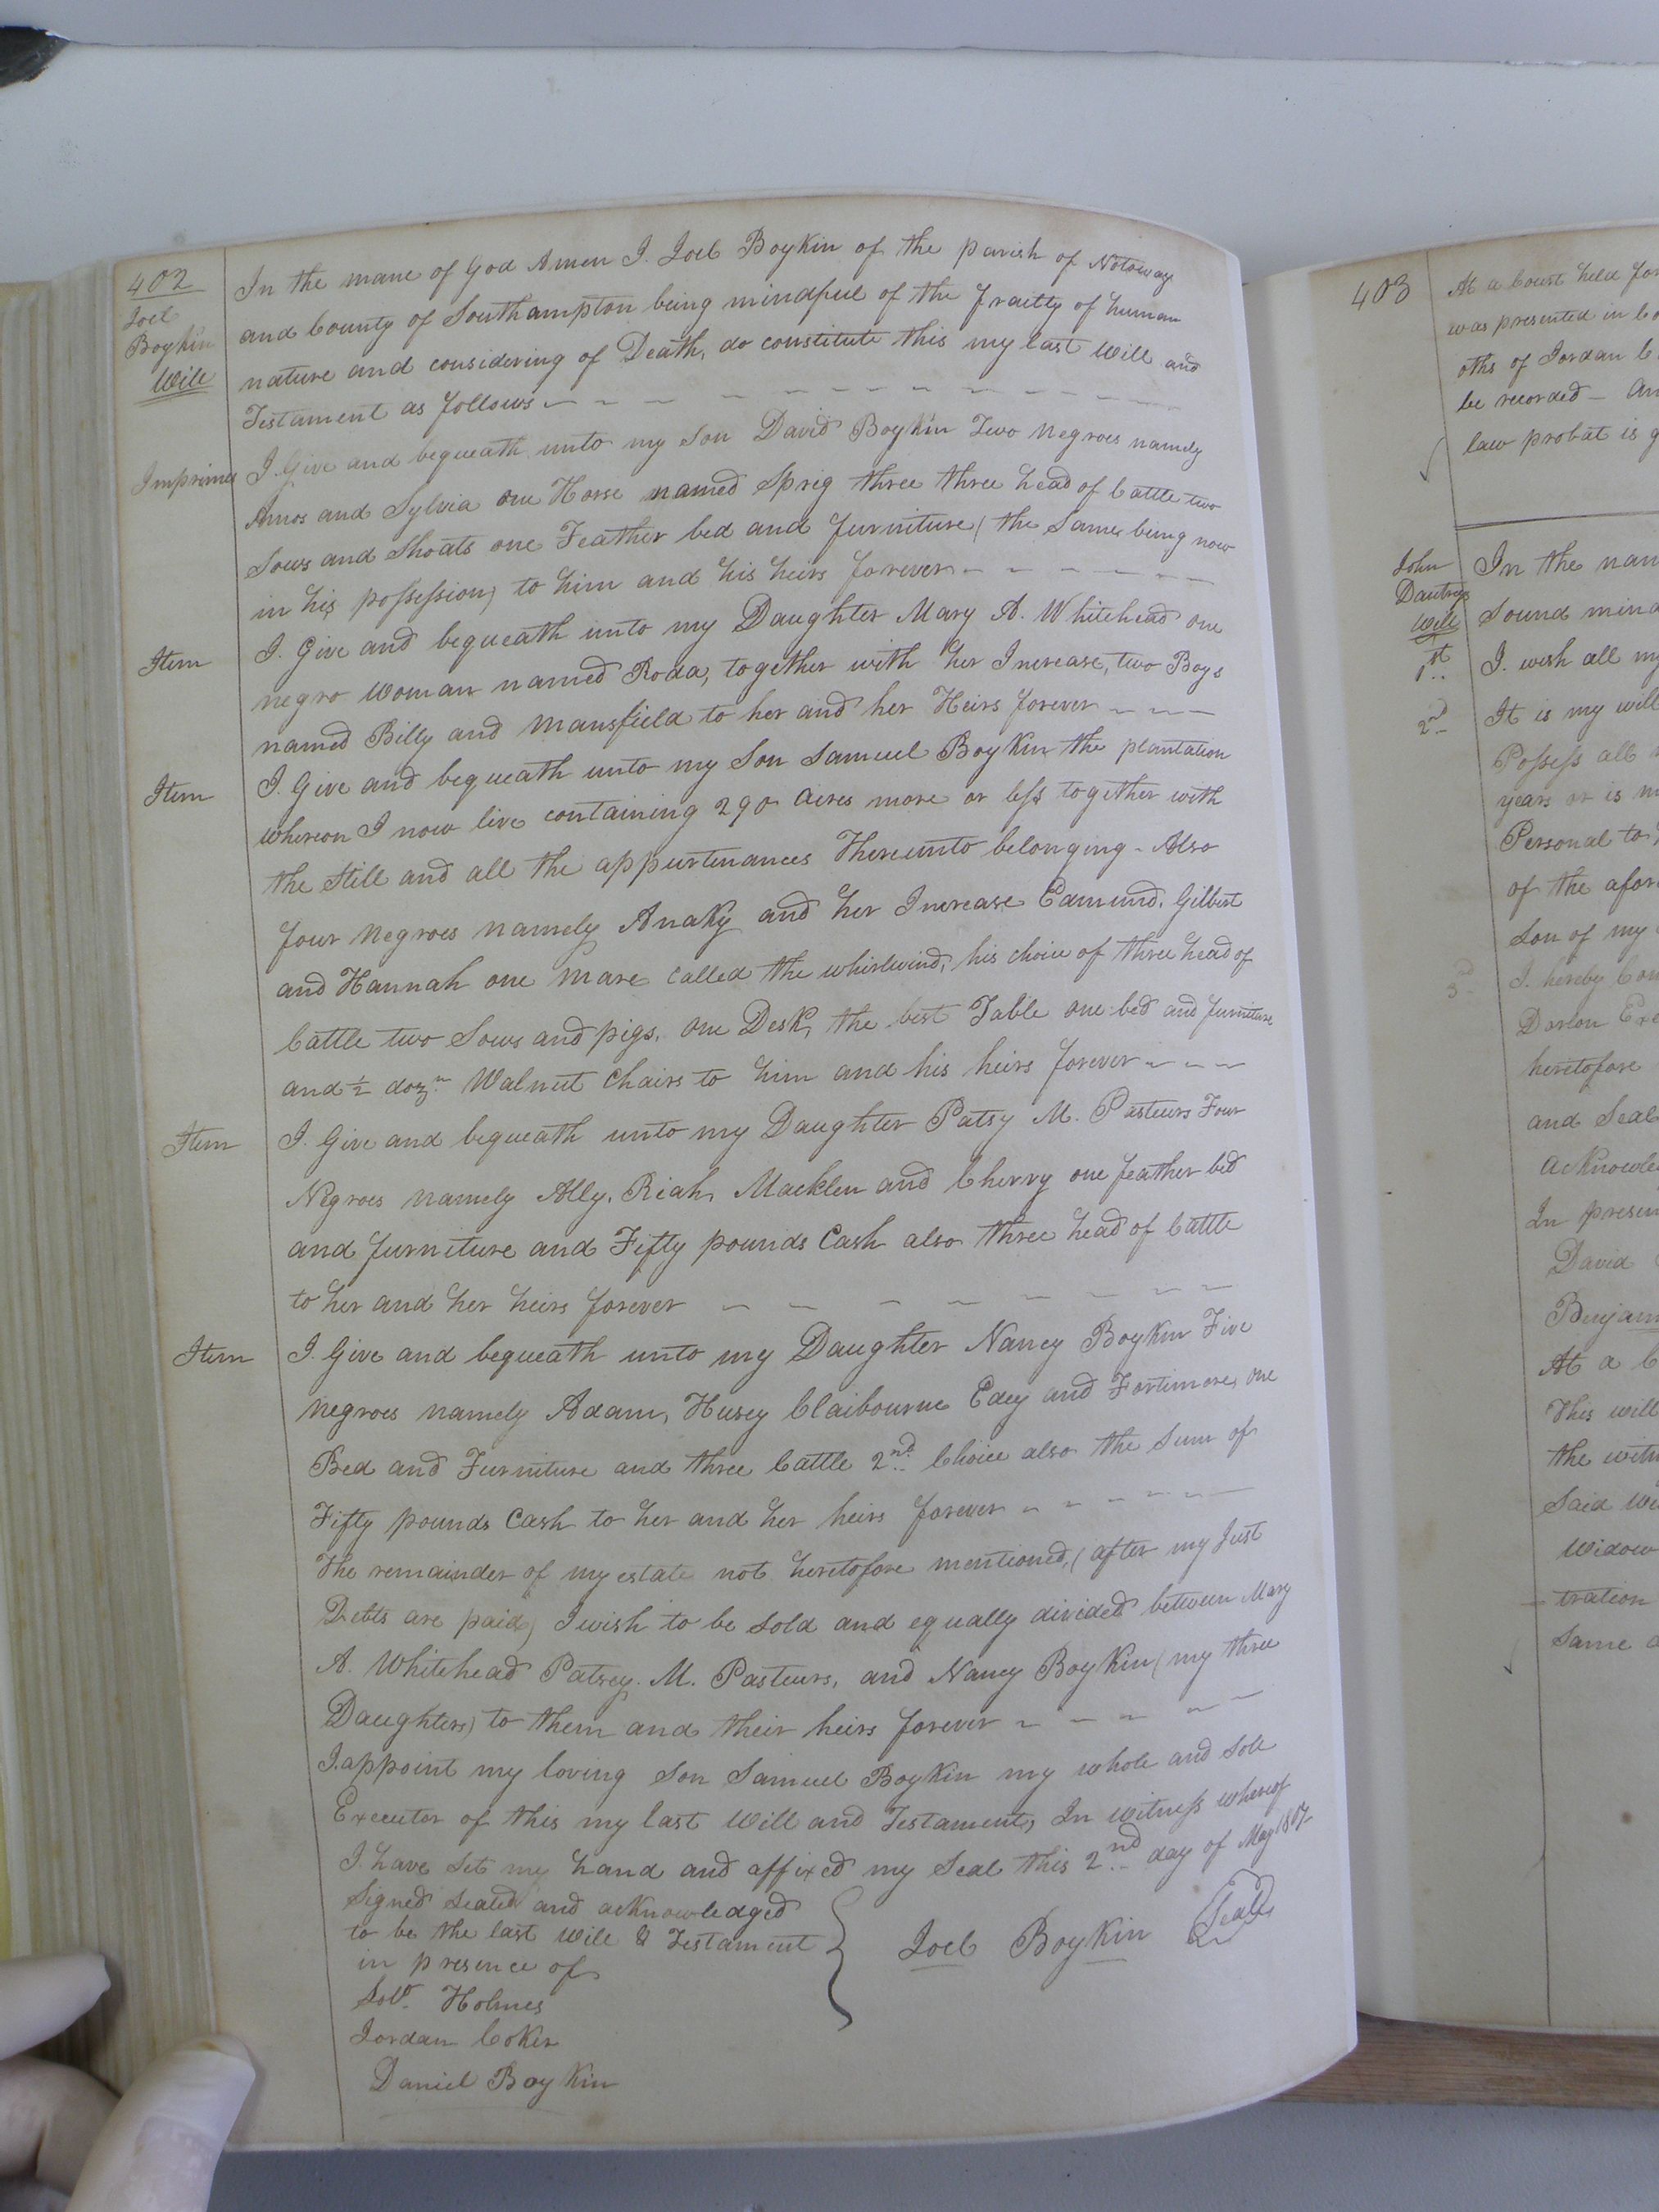 402
Joel
Boykin
Will
In the mane of God Amen I. Joel Boykin of the parish of Notoway
and County of Southampton being mindful of the frailty of human
nature and considering of Death, do constitute this my last Will and
Testament as follows
Imprimis I. Give and bequeath unto my Son David Boykin Two negroes namely
Amos and Sylvia one Horse named Sprig three three head of Cattle two
Sows and Shoats one Feather bed and furniture (the Same being now
in his possession) to him and his heirs forever
Item I. Give and bequeath unto my Daughter Mary A. Whitehead one
negro Woman named Roda, together with her Increase, two Boys
named Billy and Mansfield to her and her Heirs forever
Item I. Give and bequeath unto my Son Samuel Boykin the plantation
whereon I now live containing 290 acres more or less together with
the Still and all the appurtenances Thereunto belonging - Also
four negroes namely Anaky and her Increase Edmund, Gilbert
and Hannah one mare called the whirlwind, his choice of three head of
Cattle two Sows and pigs, one Desk, the best Table one bed and furniture
and ½ dozn Walnut Chairs to him and his heirs forever
Item I. Give and bequeath unto my Daughter Patsy M. Pasteurs Four
Negroes namely Ally, Riah, Macklen and Cherry one feather bed
and furniture and Fifty pounds Cash also three head of Cattle
to her and her heirs forever
Item I. Give and bequeath unto my Daughter Nancy Boykin Five
negroes namely Adam, Husey Claibourne Edey and Fortimore, one
Bed and Furniture and three Cattle 2nd Choice also the Sum of
Fifty pounds Cash to her and her heirs forever
The remainder of my estate not heretofore mentioned, (after my Just
Debts are paid) I wish to be Sold and equally divided between Mary
A. Whitehead Patsey. M. Pasteurs, and Nancy Boykin (my three
Daughters) to them and their heirs forever
I appoint my loving Son Samuel Boykin my whole and Sole
Executor of this my last Will and Testament, In witness whereof
I. have Set my hand and affixed my Seal this 2nd day of May
Signed Sealed and acknowledged
to be the last Will & Testament
in presence of
Joel Boykin Seal
Holmes
Jordan Coker
Daniel Boykin
403
At a Court held for
was presented in
oths of Jordan
be recorded - an
law probat is
John
Will
In the nam
Sound mind
1st I. wish all my
2nd It is my will
Possess all
years or is
Personal to
of the afor
Son of my
3d I. hereby
heretofore
and Seal
acknowle
In presen
David
Benjam
At a
This will
the witn
Said
Widow
tration
Same